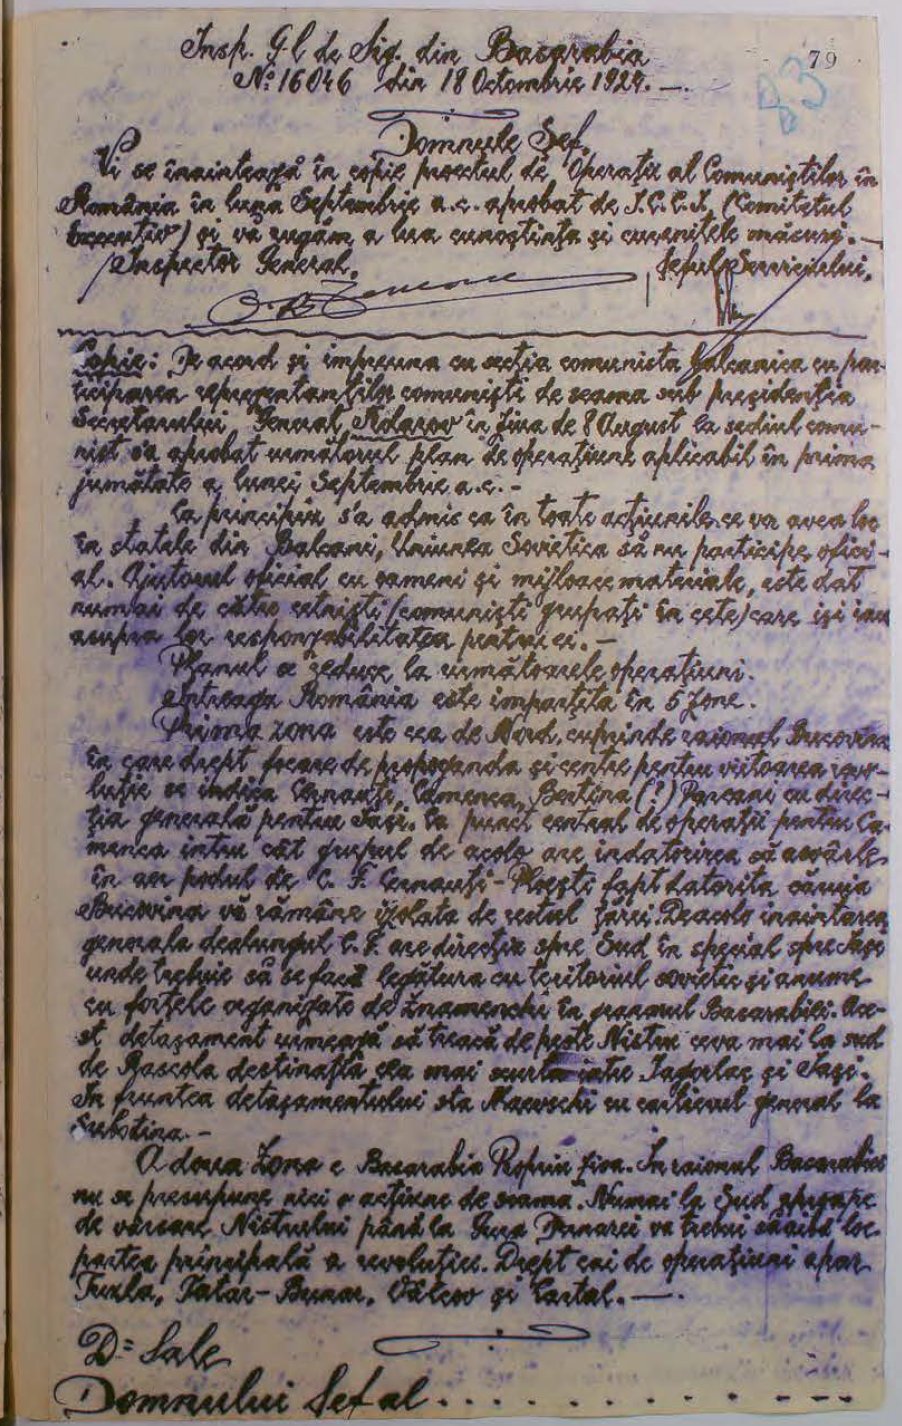 79
83
Insp. Gl de Sig. din Basarabia
No: 16046 din 18 Octombrie 1924. —.
Domnule Șef,
Vi se înaintează în copie proectul de Operații al Comuniștilor în
România în luna Septembrie a.c. aprobat de I.C.C.I. (Comitetul
Executiv) și vă rugăm a lua cunoștința și cuvenitele măsuri. —
Inspector General, Șeful Serviciului,
Copie: De acord și impreuna cu secția comunista balcanica cu par-
ticiparea reprezentanților comuniști de seama sub președenția
Secretarului General Kolarov în ziua de 8 August la sediul comu-
nist s'a aprobat următorul plan de operațiuni aplicabil în prima
jumătate a lunei Septembrie a.c. -
La principiu s'a admis ca în toate acțiunile ce va avea loc
în statele din Balcani, Uniunea Sovietica să nu participe ofici-
al. Ajutorul oficial cu oameni și mijloace materiale, este dat
numai de către cetniști (comuniști grupați în cete) care iși iau
asupra lor responzabilitatea pentru ei. —
Planul se reduce la următoarele operațiuni.
Intreaga România este imparțita în 5 zone.
Prima zona este cea de Nord, cuprinde raionul Bucovina
în care drept focare de propoganda și centre pentru viitoarea revo-
luție se indica Cernauți, Camenca, (?) Parcani cu direc-
ția generală pentru Iași. Ca punct central de operații pentru Ca-
menca intru cât grupul de acolo are indatorirea să asvârle
în aer podul de C. F. Cernauți - Ploești fapt datorita căruia
Bucovina vă rămâne izolata de restul țarei. De acolo inaintarea
generala dealungul C. F. are direcția spre Sud în special spre Iași
unde trebuie să se facă legătura cu teritoriul sovietic și anume
cu forțele organizate de Znamenchi în raionul Basarabiei. Ace-
st detașament urmează să treacă de peste Nistru ceva mai la sud
de Rascola destinația cea mai scurta intre Iagorlac și Iași.
In fruntea detașamentului sta Macoschi cu cartierul general la
Subotina. -
A doua Zona e Basarabia Propriu zisa. In raionul Basarabiei
nu se presupune nici o acțiune de seama. Numai la Sud
de varsare Nistrului până la Gura Dunarei va trebui să aibă loc
partea principală a revoluției. Drept cai de operațiuni apar
Tuzla, Tatar-Bunar, Vâlcov și Cartal. —.
D=Sale
Domnului Șef al . . . . . . . . . . - - -